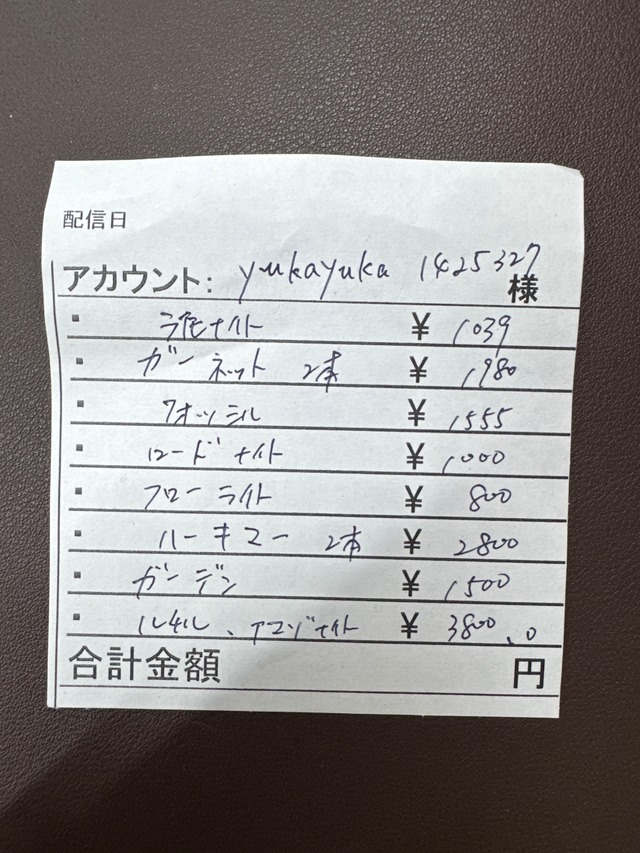 配信日
アカウント: yukayuka 1425327 様
ナイト ¥ 1039
ガーネット 2本 ¥ 1980
フォッシル ¥ 1555
ロードナイト ¥ 1000
フローライト ¥ 800
ハーキマー 2本 ¥ 2800
ガーデン ¥ 1500
ルチル、アマゾナイト ¥ 3800
合計金額 円